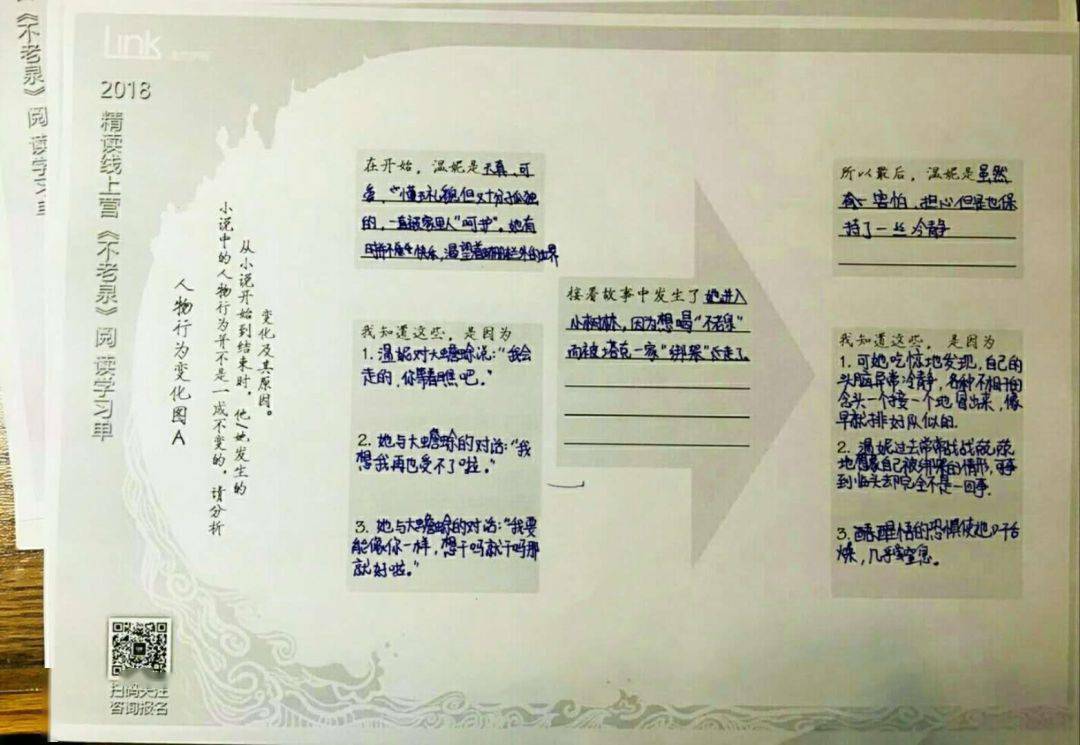 Link
2018
精读线上营《不老泉》阅读学习单
《不老泉》阅读学习单
人物行为变化图A
小说中的人物行为并不是一成不变的，请分析
从小说开始到结束时，他/她发生的
变化及其原因。
在开始，温妮是天真、可
爱、懂礼貌但又十分孤独
的，一直被家里人“呵护”。她有
时并不感快乐，渴望着栅栏外的世界
我知道这些，是因为
1. 温妮对大蟾蜍说：“我会
走的，你等着瞧吧。”
2. 她与大蟾蜍的对话：“我
想我再也受不了啦。”
3. 她与大蟾蜍的对话：“我要
能像你一样，想干吗就干吗那
就好啦。”
接着故事中发生了她进入
小树林，因为想喝“不老泉”
而被塔克一家“绑架”走了。
所以最后，温妮是虽然
害怕、担心但是也保
持了一丝冷静
我知道这些，是因为
1. 可她吃惊地发现，自己的
头脑异常冷静，各种不相干的
念头一个接一个地冒出来，像
早就排好队似的.
2. 温妮过去常常战战兢兢
地想象自己被绑架的情形，可事
到临头却完全不是一回事.
3. 醒悟的恐惧使她口干舌
燥，几乎窒息.
扫码关注
咨询报名